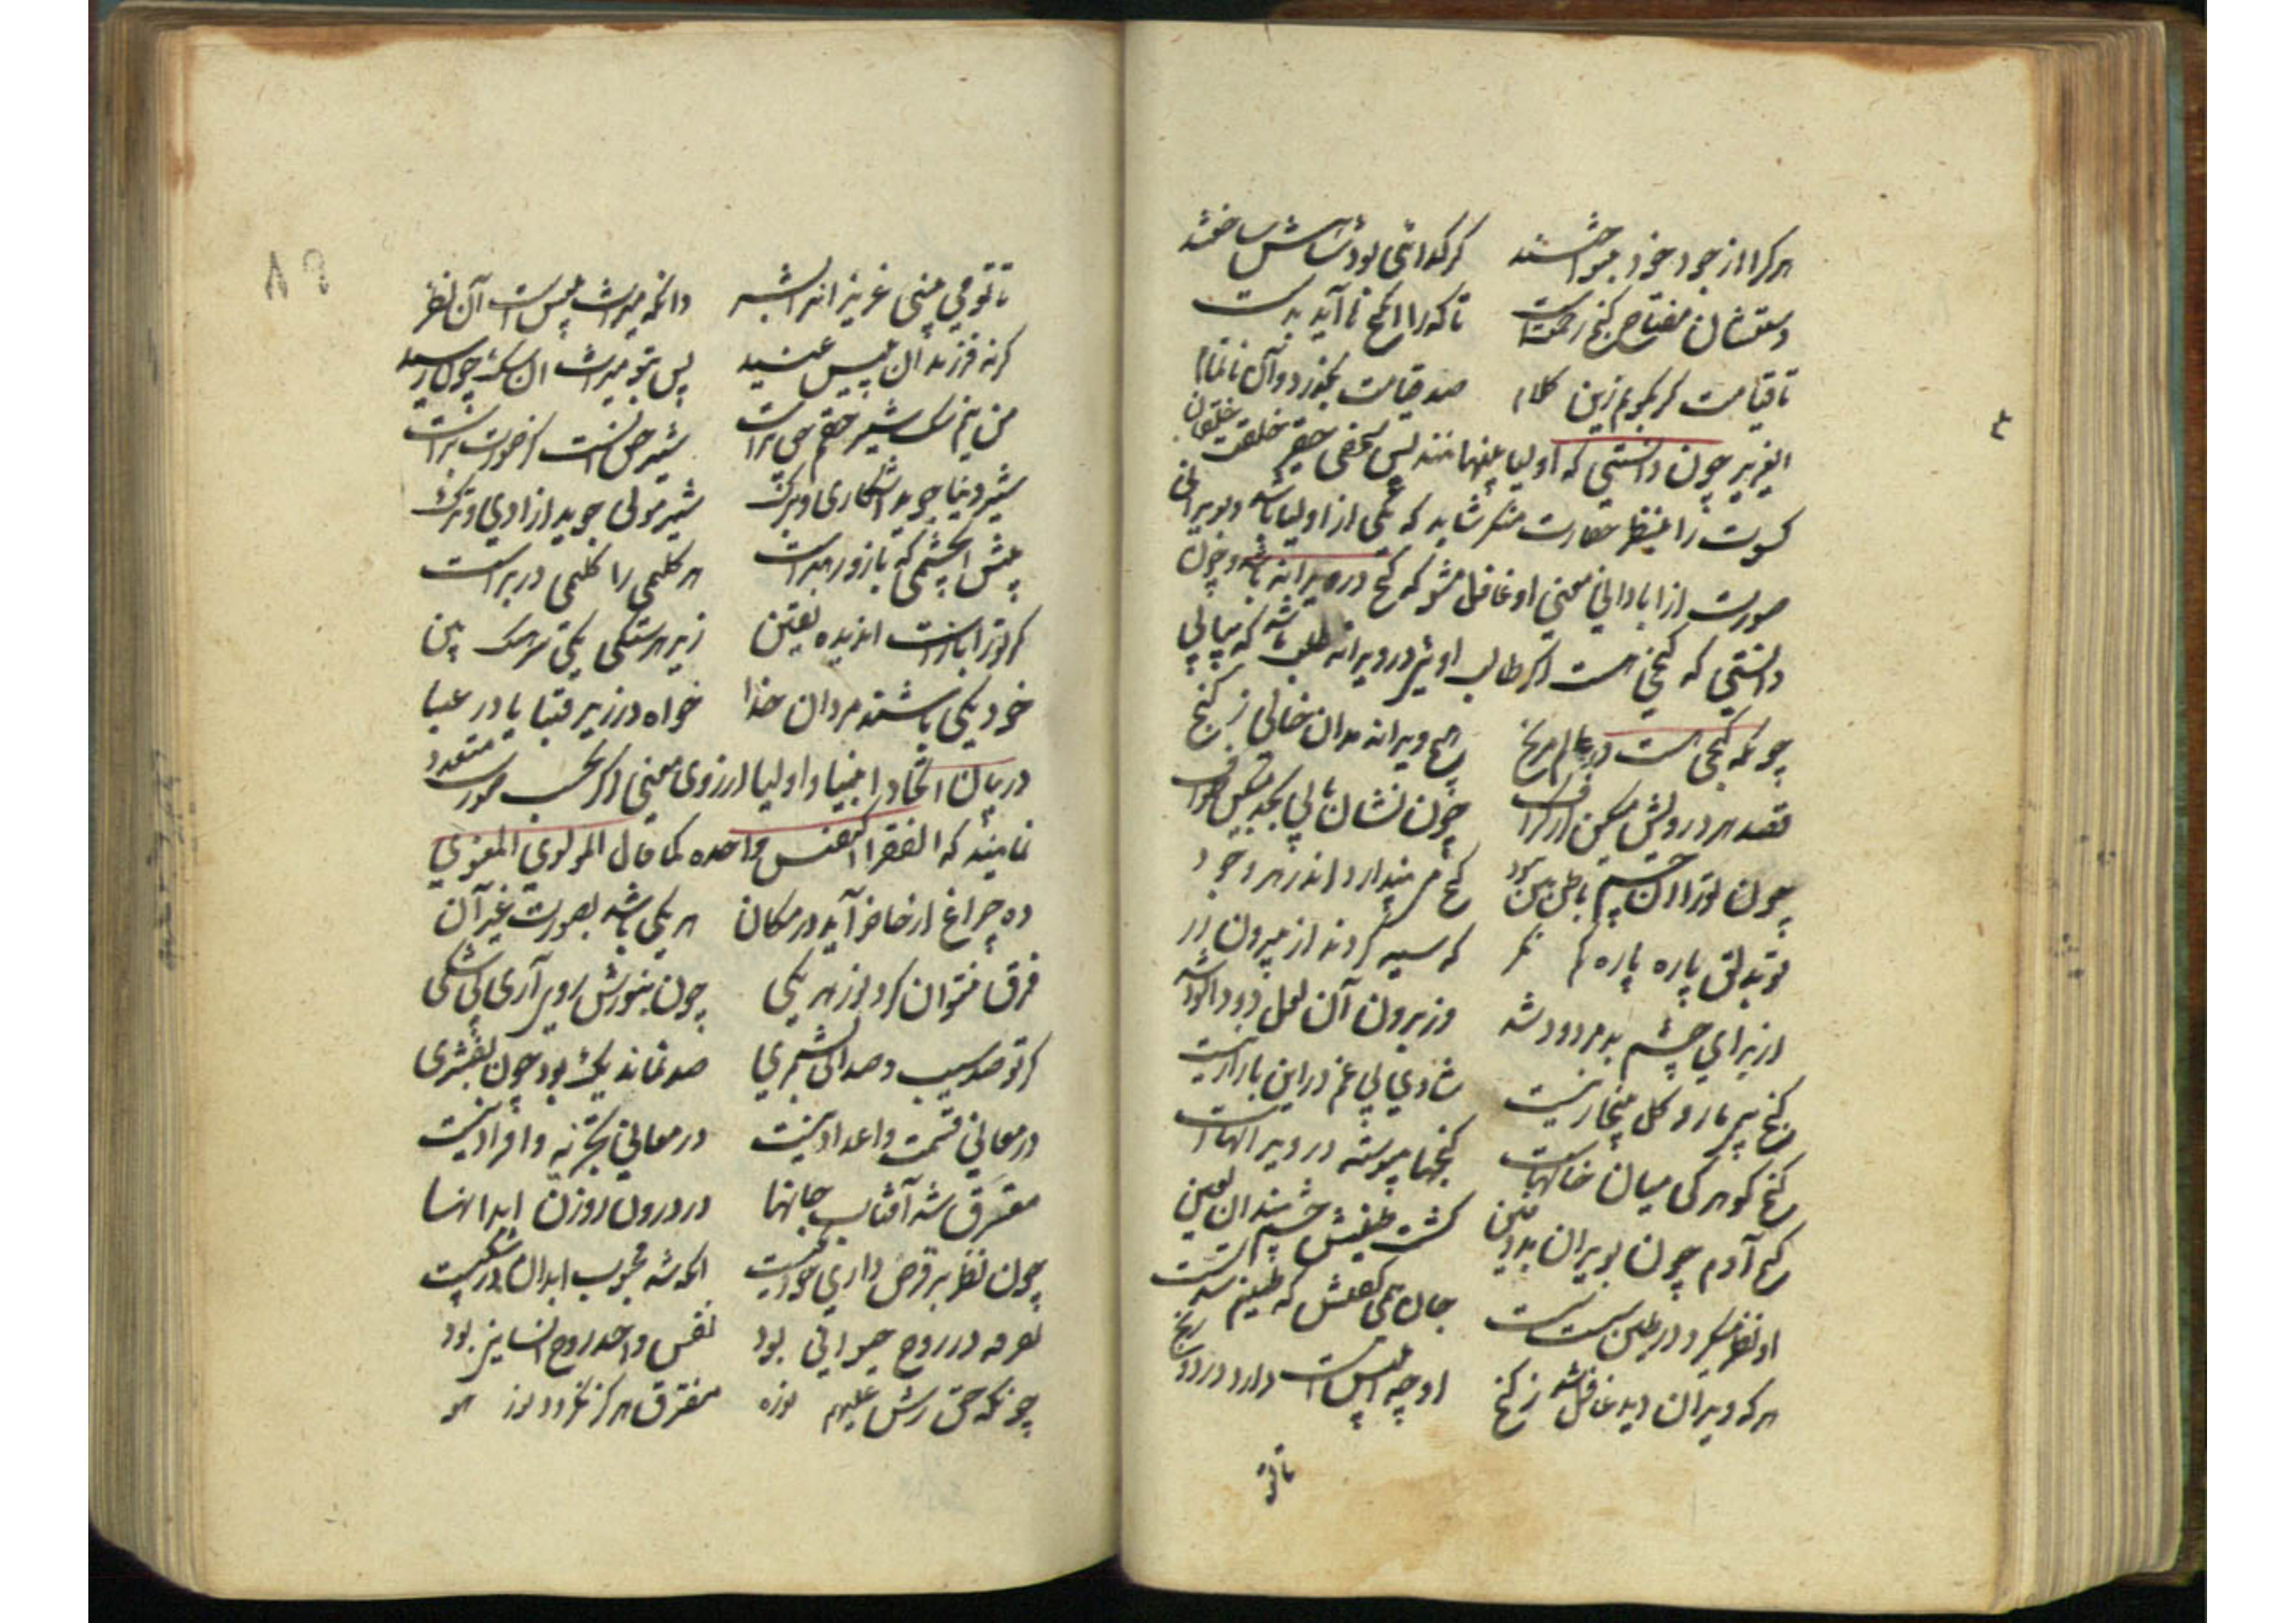 هرکرا از جود خود
تا قیامت کر بکویم زین کلام صد قیامت بکذرد و آن ناتمام
ایعزیز چون دانستی که اولیا پنهانند پس شخصی حقیر خلقت خلقان
کسوت را بنظر حقارت منکر شاید که یکی از اولیا باشد و بویرانی
صورت از ابادانی معنی او غافل مشو که کنج در ویرانه باشد و چون
دانستی که کنجی هست اکر طالب اوئی در ویرانه طلب باشد که بیابی
چونکه کنجی هست در عالم مرنج هیچ ویرانه مدان خالی ز کنج
قصد هر درویش میکن از کزاف چون نشان یابی بجد میکن طواف
چون ترا آن چشم باطن بین نبود کنج می پندار اندر هر وجود
تو بدلق پاره پاره کم نکر که سیه کردند از بیرون زر
از برای چشم بد مردود شد وز برون آن لعل دودالود شد
کنج بی مار و کل بیخار نیست شادی بی غم در این بازار نیست
کنج کوهر کی میان خانهاست کنجها پیوسته در ویرانهاست
کنج آدم چون بویران بد دفین کشت طینش چشم بند آن لعین
او نظر میکرد در طین سست سست جان همی کفتش که طینم سد تست
هرکه ویران دید غافل شد ز کنج
تا تو
تا تو می بینی عزیز انرا بشر دانکه میراث بلیس است آن نظر
کرنه فرزندان بلیس عنید پس بتو میراث ان سک چون رسید
من نیم سک شیر حقم حق پرست شیر حق انست کز صورت برست
شیر دنیا جوید اشکاری و برک شیر مولی جوید ازادی و مرک
پیش چشمی که باز و رهبر است هر کلیمی را کلیمی در بر است
کر تو را باز است ان دیده یقین زیر هر سنکی یکی سرهنک بین
خود یکی باشند مردان خدا خواه در زیر قبا یا در عبا
در بیان اتحاد انبیا و اولیا از روی معنی اکر بحسب صورت متعدد
نمایند که الفقرا کنفس واحده کما قال المولوی المعنوی
ده چراغ ار حاضر آید در مکان هر یکی باشد بصورت غیر آن
فرق نتوان کرد نور هر یکی چون بنورش روی آری بی شکی
کر تو صد سیب و صد آبی بشمری صد نماند یک بود چون بفشری
در معانی قسمت و اعداد نیست در معانی تجزیه و افراد نیست
مفترق شد آفتاب جانها در درون روزن ابدانها
چون نظر بر قرص داری خود یکیست انکه شد محجوب ابدان در شکیست
تفرقه در روح حیوانی بود نفس واحد روح انسانی بود
چونکه حق رش علیهم نوره مفترق هرکز نکردد نور هو